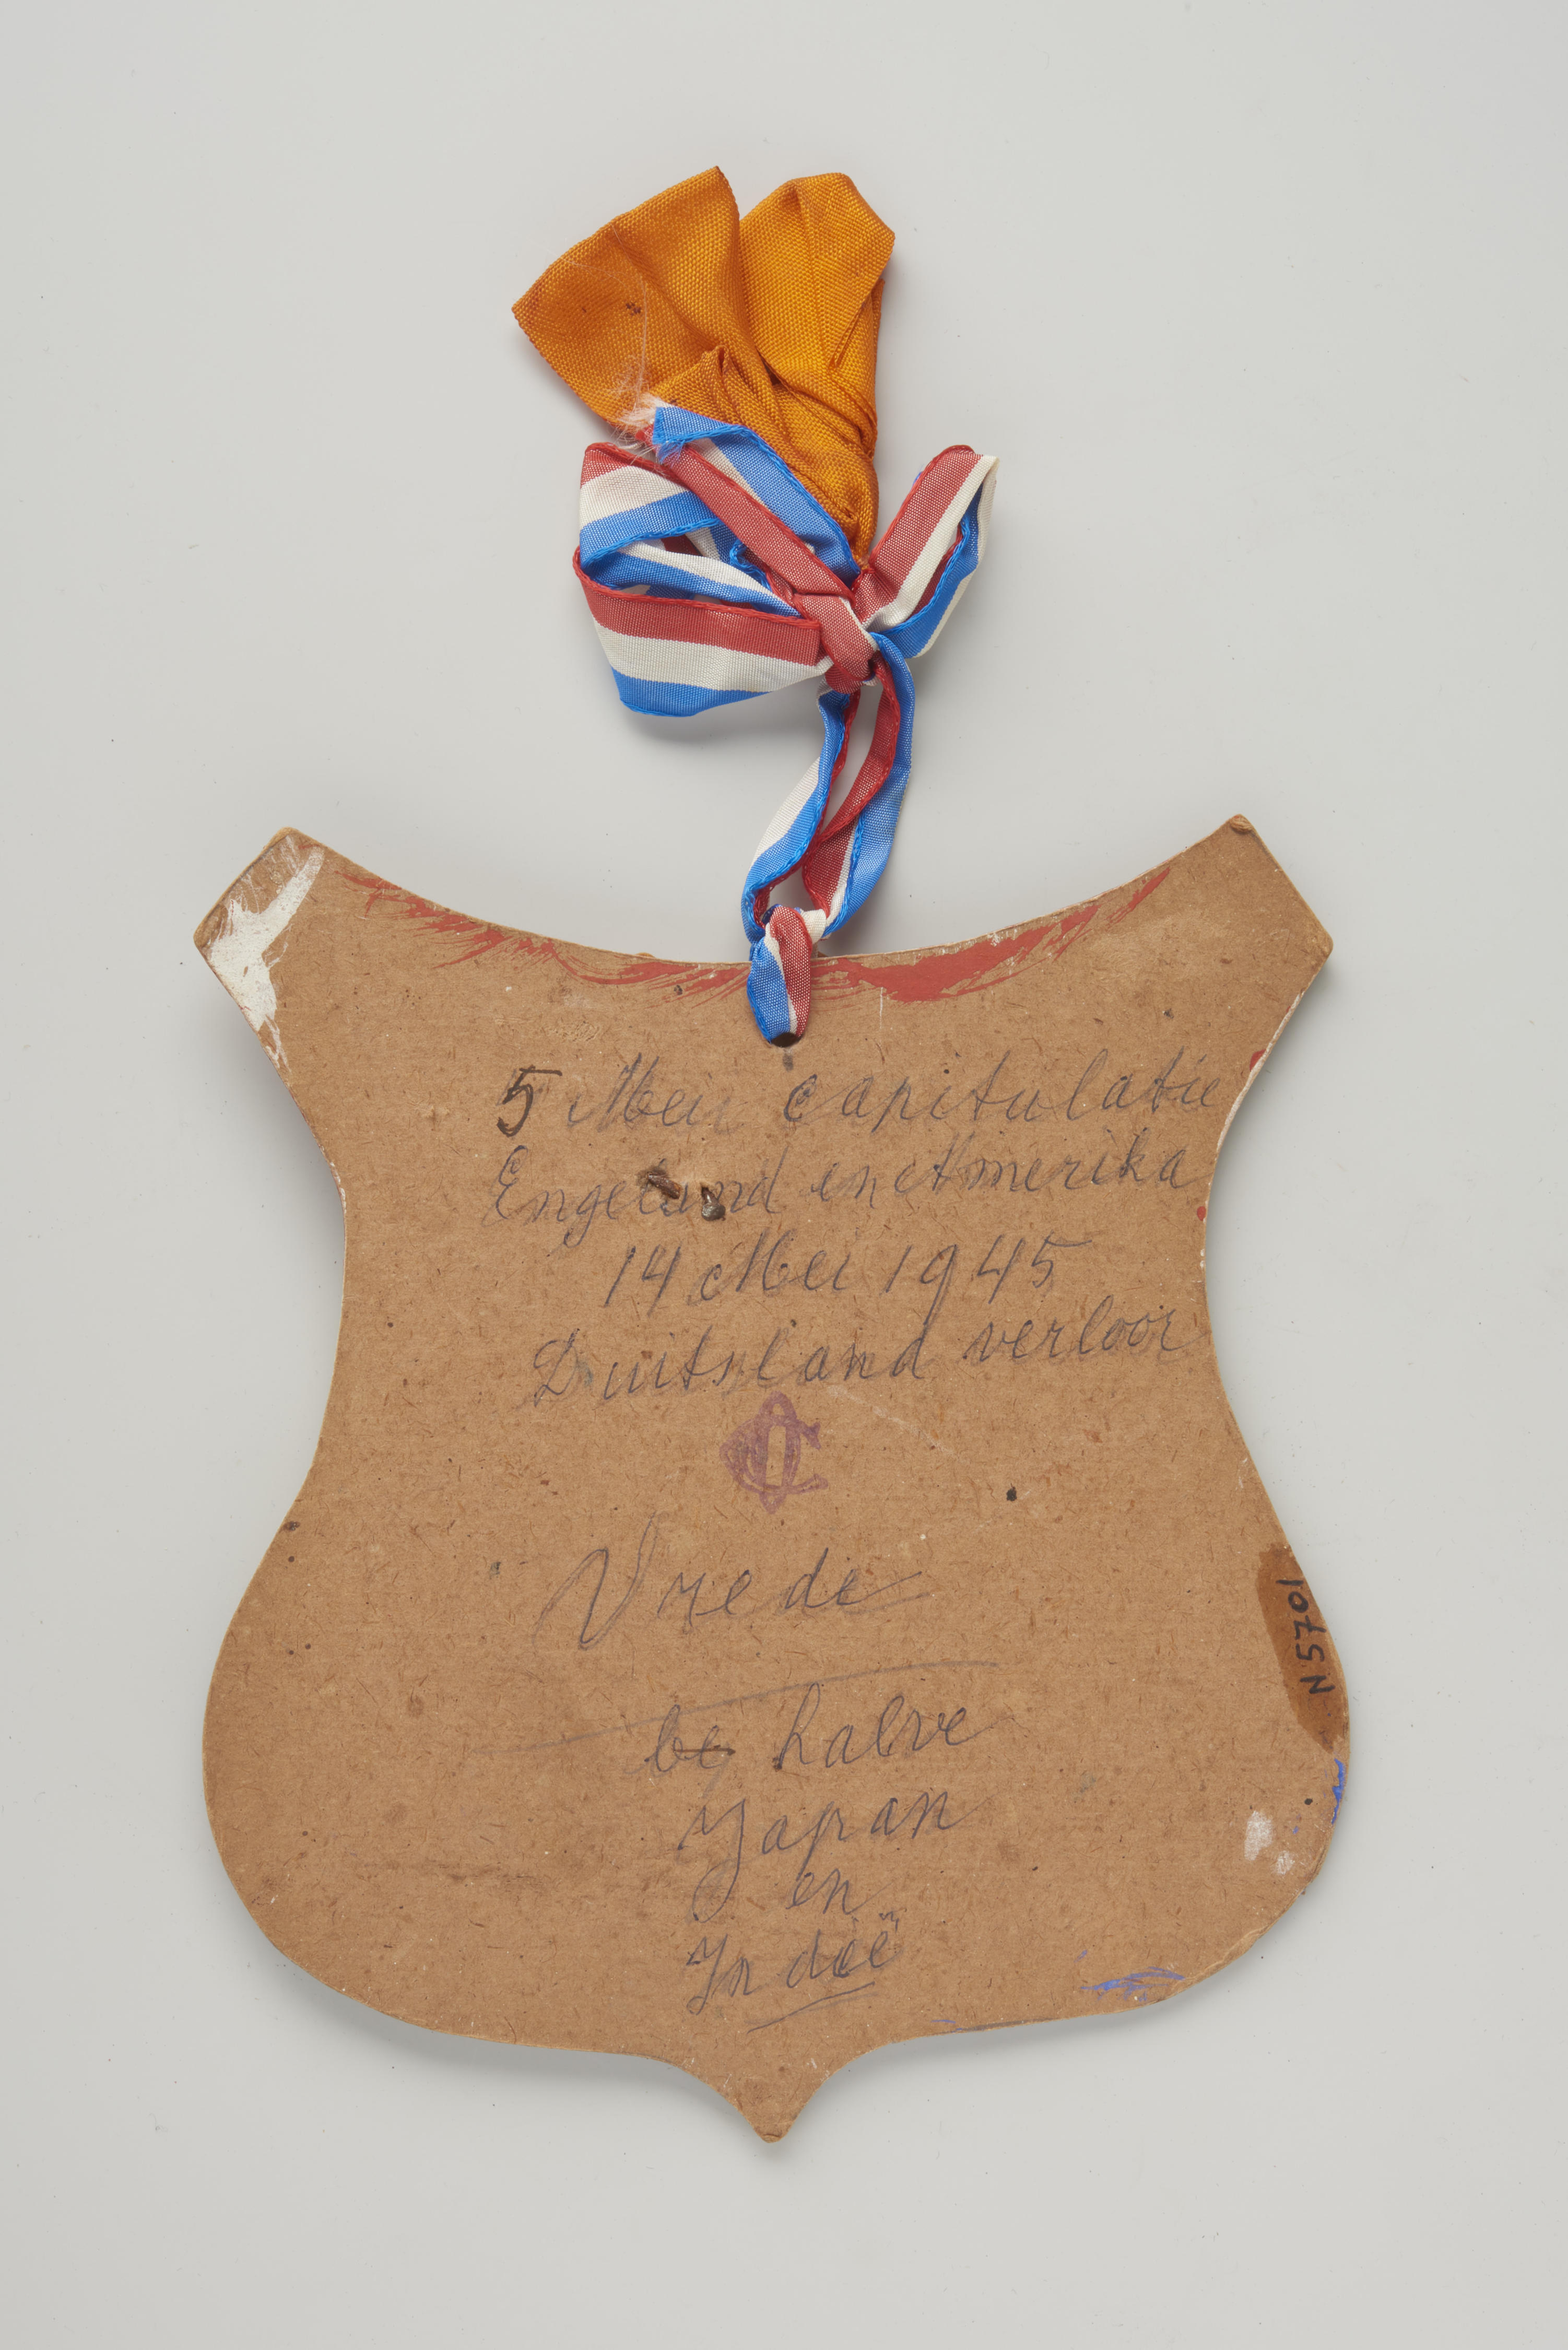 5 Mei capitulatie
Engeland en Amerika
14 Mei 1945
Duitsland verloor
Vrede
be halve
Japan
en
Indië
N5701